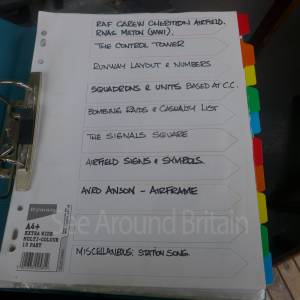 RAF CAREW CHERITON AIRFIELD.
RNAS MILTON (WWI).
THE CONTROL TOWER
RUNWAY LAYOUT & NUMBERS
SQUADRONS & UNITS BASED AT C.C.
BOMBING RAIDS & CASUALTY LIST
THE SIGNALS SQUARE
AIRFIELD SIGNS & SYMBOLS.
AVRO ANSON - AIRFRAME
See Around Britain
A4+
EXTRA WIDE
MULTI-COLOUR
10 PART
MISCELLANEOUS: STATION SONG.